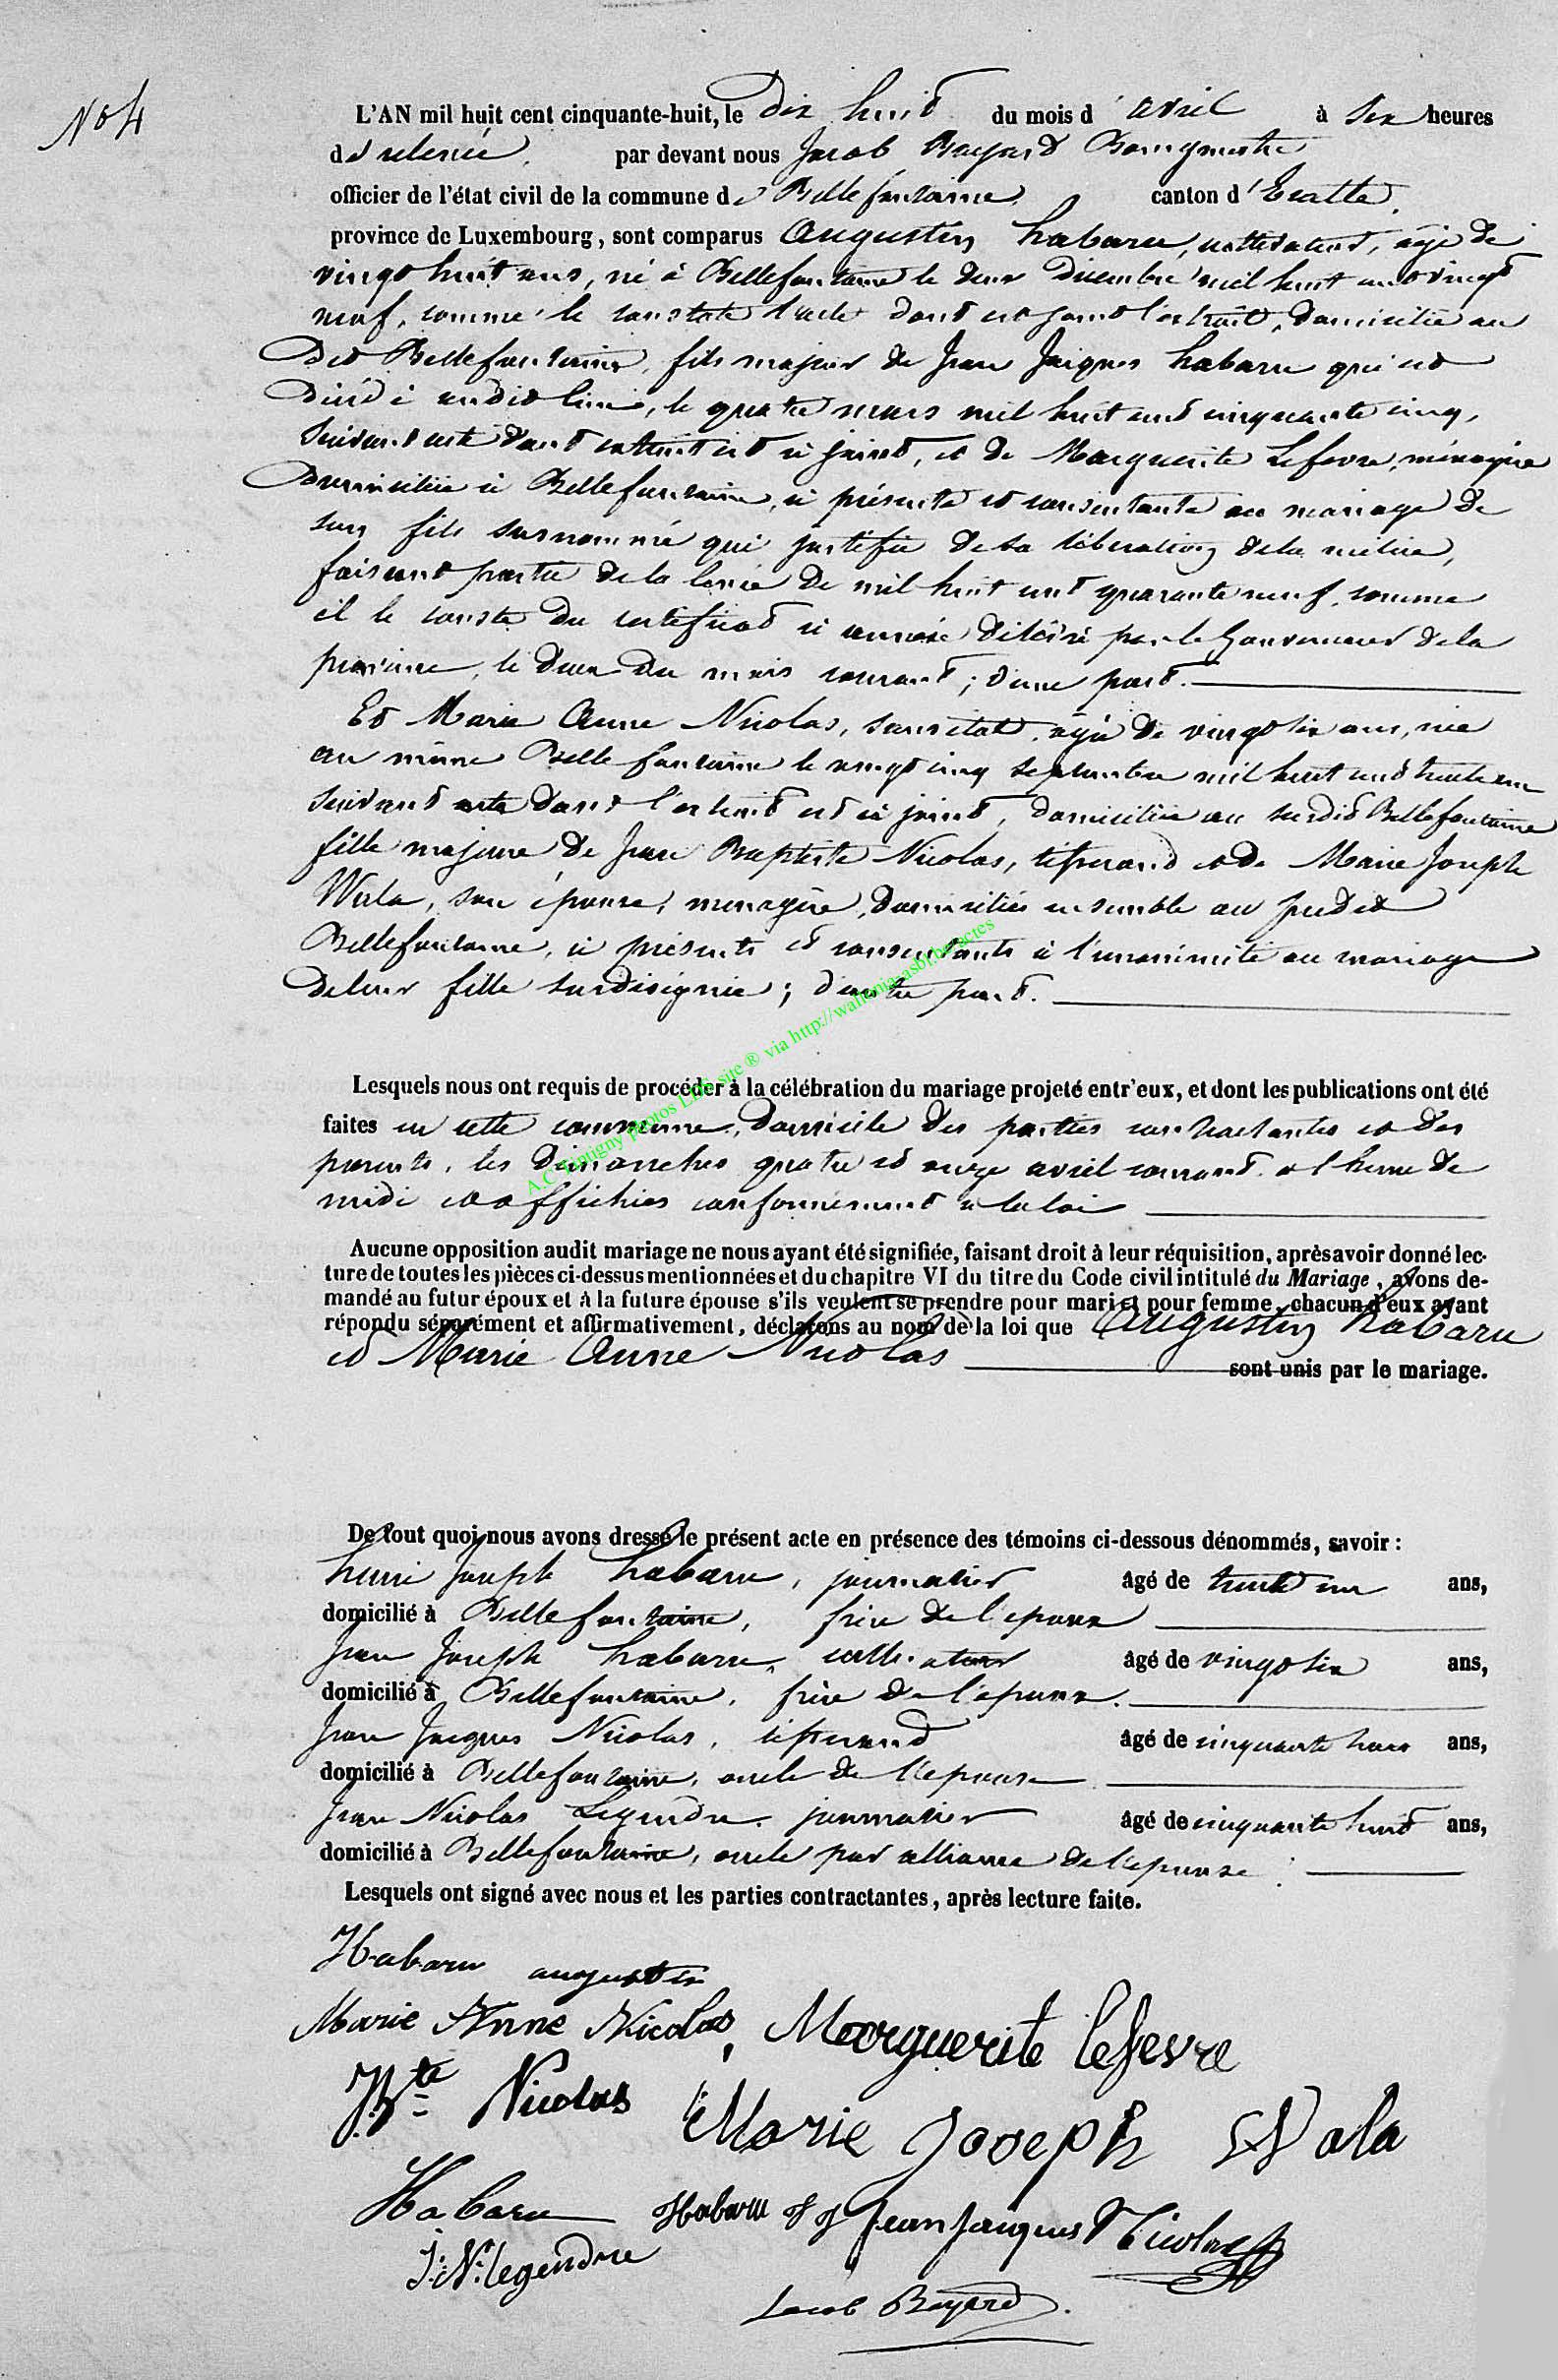 No 4
L'AN mil huit cent cinquante-huit, le dix huit du mois d'avril à six heures
de relevée, par devant nous Jacob Bayard Bourgmestre
officier de l'état civil de la commune de Bellefontaine, canton d'Etalle,
province de Luxembourg, sont comparus Augustin habaru, cultivateur, âgé de
vingt huit ans, né à Bellefontaine le deux Décembre mil huit cent vingt
neuf, comme le constate l'acte dont est joint l'extrait, domicilié au
dit Bellefontaine, fils majeur de Jean Jacques habaru qui est
décédé audit lieu, le quatre mars mil huit cent cinquante cinq,
suivant acte dont extrait est ci joint, et de Marguerite Lefevre, ménagère
domiciliée à Bellefontaine, ci présente et consentante au mariage de
son fils surnommé qui justifie de sa libération de la milice,
faisant partie de la levée de mil huit cent quarante neuf, comme
il le conste du certificat ci annexé délivré par le Gouverneur de la
province, le deux du mois courant; d'une part.
Et Marie Anne Nicolas, sans état, âgée de vingt six ans, née
au même Bellefontaine le vingt cinq septembre mil huit cent trente un
suivant acte dont l'extrait est ci joint, domiciliée au susdit Bellefontaine
fille majeure de Jean Baptiste Nicolas, tisserand et de Marie Joseph
Wala, son épouse, ménagère, domiciliés ensemble au predit
Bellefontaine, ci présents et consentants à l'unanimité au mariage
de leur fille susdésignée; d'autre part.
A.C. Tintigny photos LDS site ® via http://wallonia-asbl.be/actes
Lesquels nous ont requis de procéder à la célébration du mariage projeté entr'eux, et dont les publications ont été
faites en cette commune, domicile des parties contractantes et des
parents, les Dimanches quatre et onze avril courant à l'heure de
midi et affichées conformément à la loi
Aucune opposition audit mariage ne nous ayant été signifiée, faisant droit à leur réquisition, après avoir donné lec-
ture de toutes les pièces ci-dessus mentionnées et du chapitre VI du titre du Code civil intitulé du Mariage, avons de-
mandé au futur époux et à la future épouse s'ils veulent se prendre pour mari et pour femme, chacun d'eux ayant
répondu séparément et affirmativement, déclarons au nom de la loi que Augustin habaru
et Marie Anne Nicolas sont unis par le mariage.
De tout quoi nous avons dressé le présent acte en présence des témoins ci-dessous dénommés, savoir:
henri Joseph habaru, journalier âgé de trente un ans,
domicilié à Bellefontaine, frère de l'époux
Jean Joseph habaru, cultivateur âgé de vingt six ans,
domicilié à Bellefontaine, frère de l'époux.
Jean Jacques Nicolas, tisserand âgé de cinquante trois ans,
domicilié à Bellefontaine, oncle de l'épouse
Jean Nicolas Legendre, journalier âgé de cinquante huit ans,
domicilié à Bellefontaine, oncle par alliance de l'épouse.
Lesquels ont signé avec nous et les parties contractantes, après lecture faite.
Habaru augustin
Marie Anne Nicolas, Marguerite lefevre
J.Bte Nicolas Marie Joseph Wala
Habaru Habaru J J Jean Jacques Nicolas
J.N. legendre
Jacob Bayard.